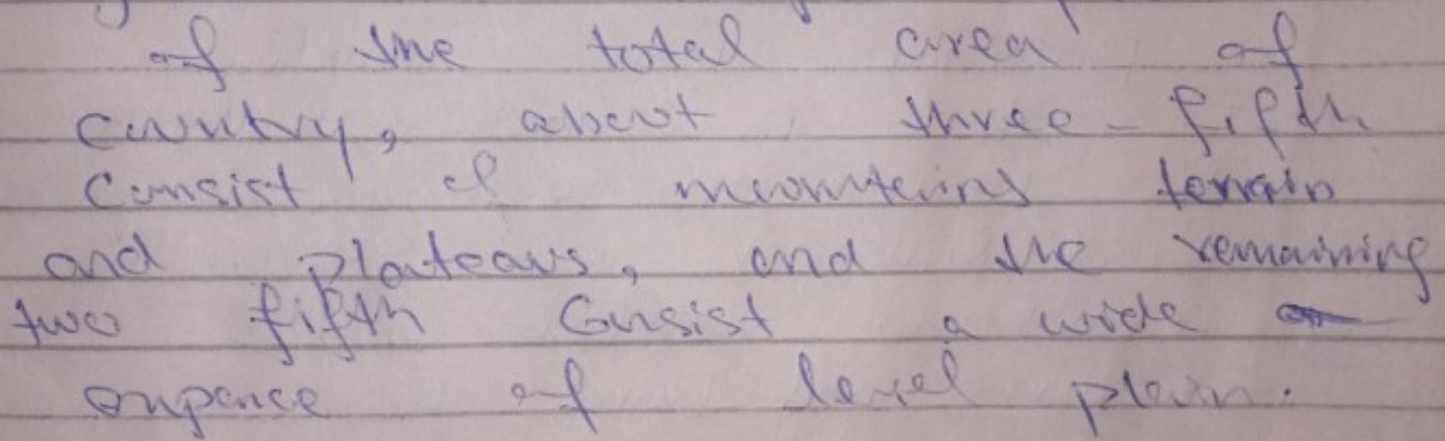 of the total area of
country, about three-fifth
Consist of mountains terrain
and plateaus, and the remaining
two fifth Consist a wide
expence of level plain.